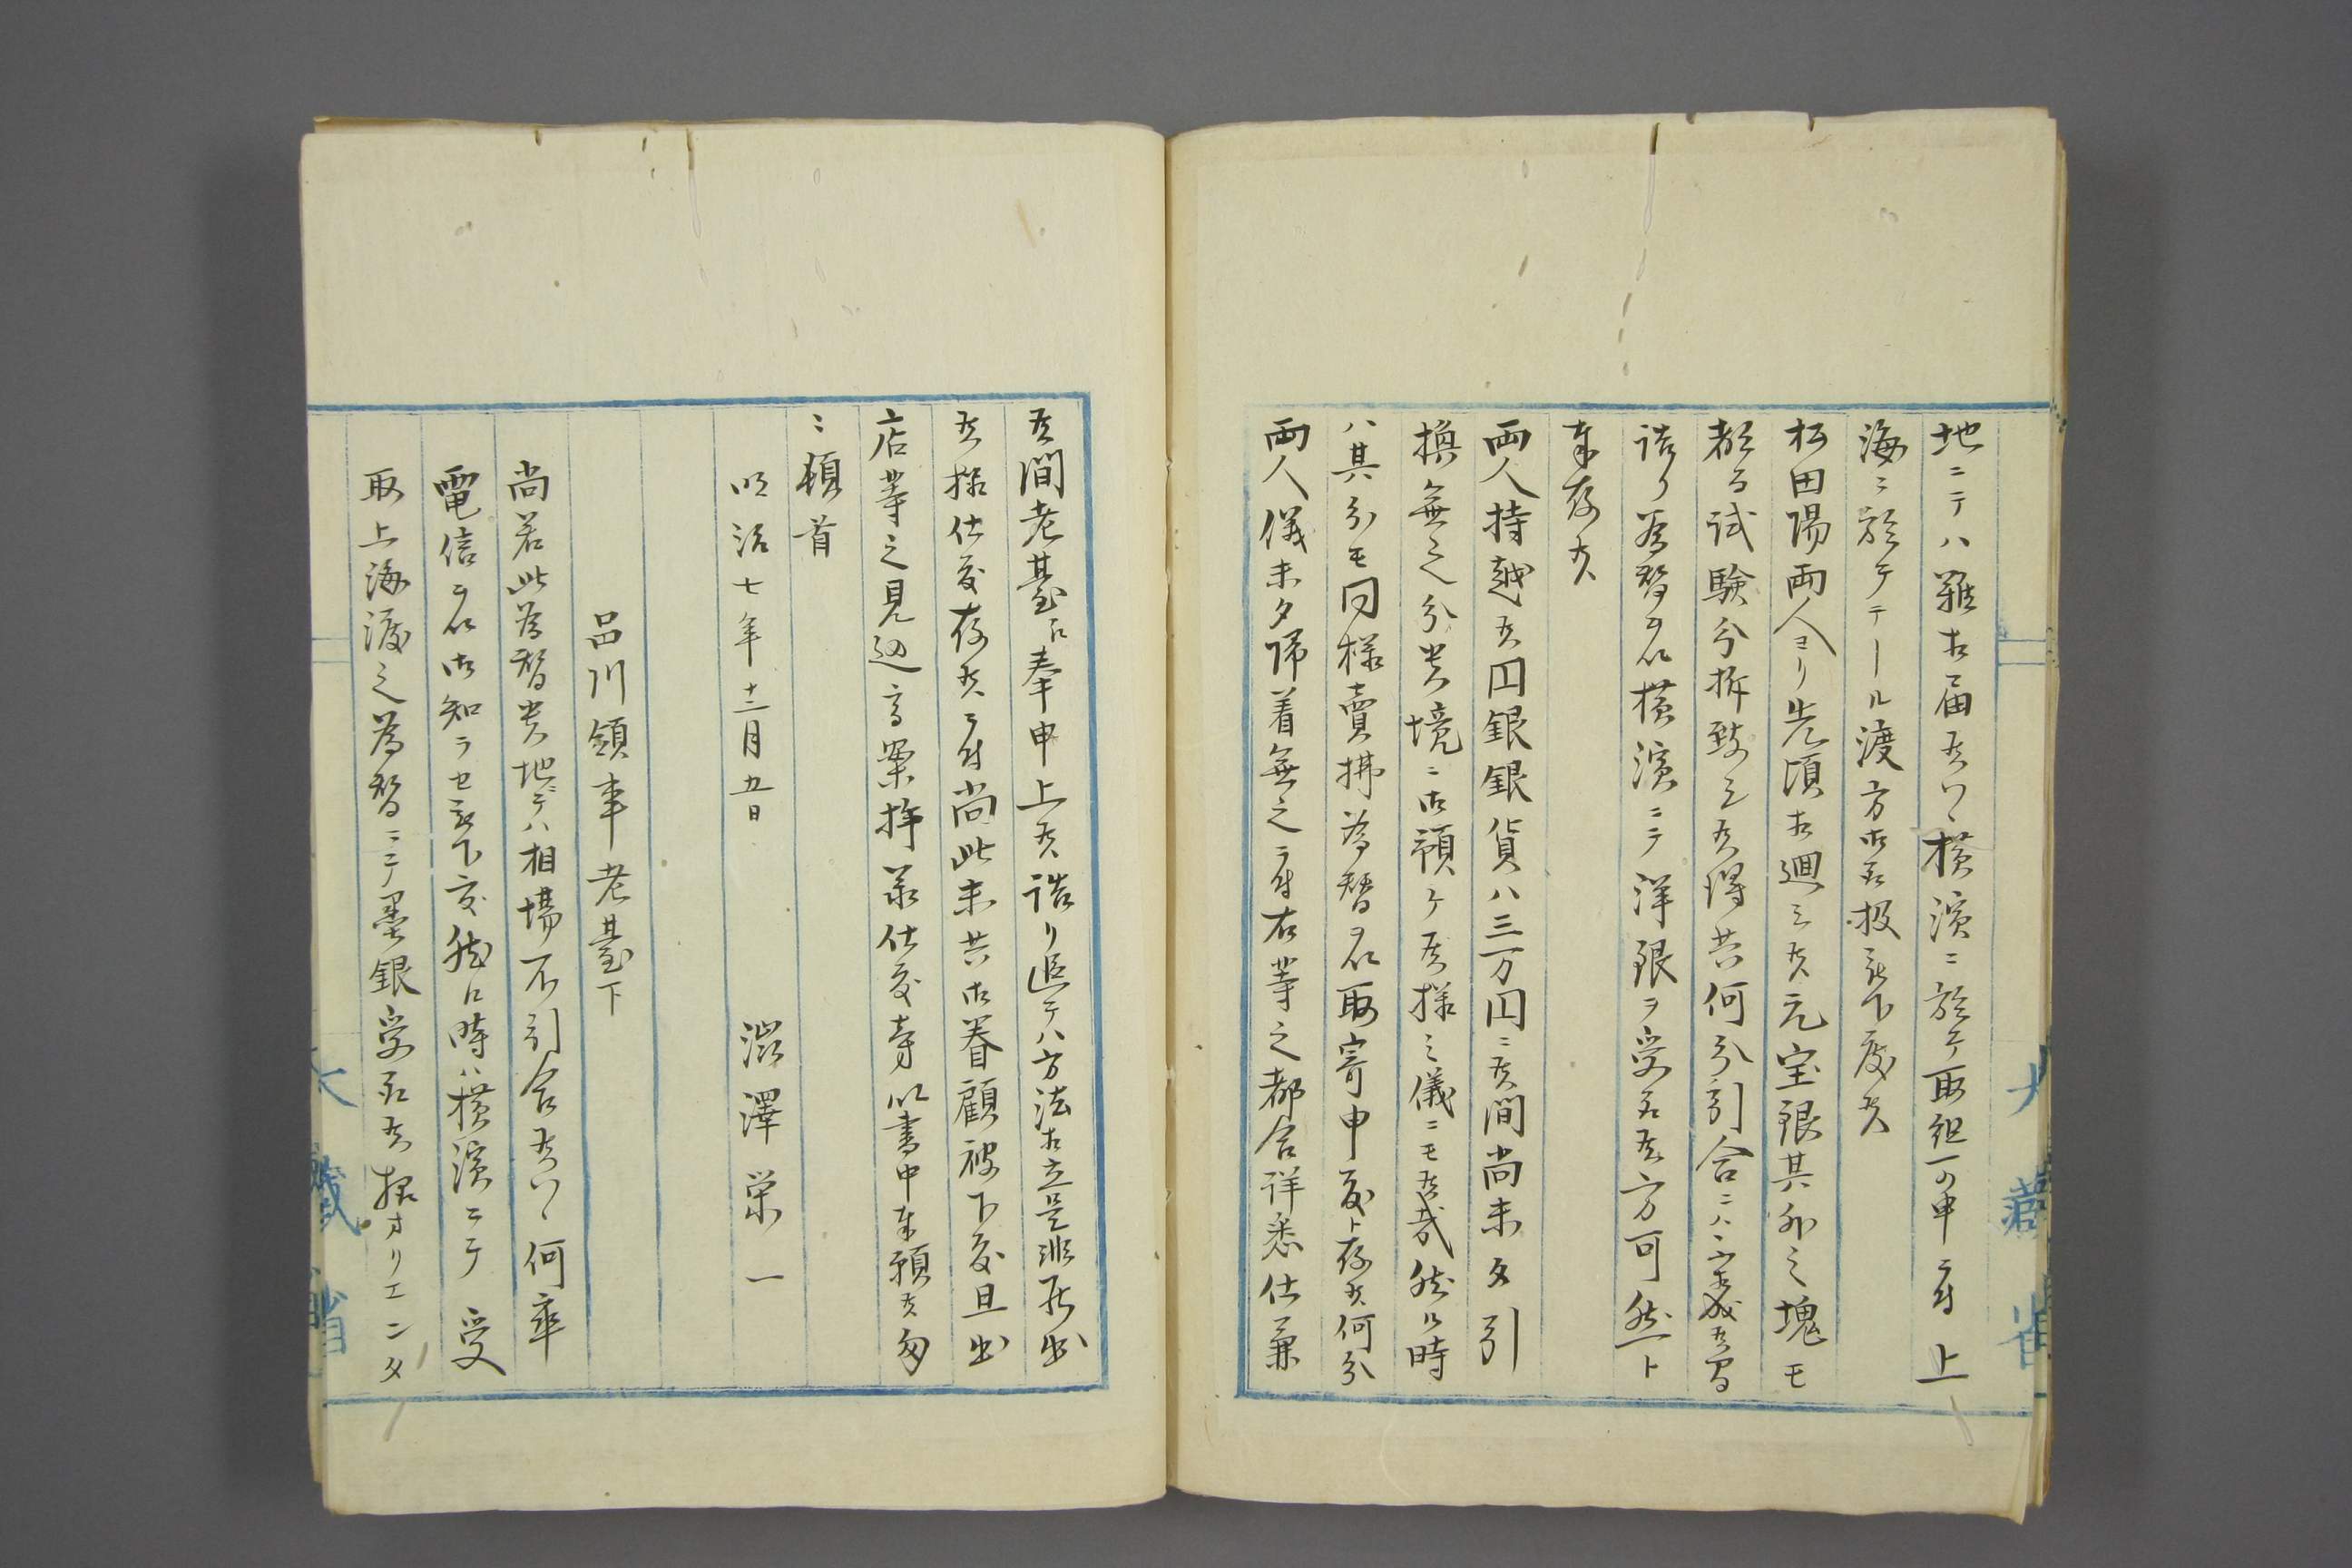 地ニテハ難相届候ハヽ横濱ニ於テ取組可申ニ付上
海ニ於テテール渡方御取扱被下度候
松田陽両人ヨリ先頃相廻シ候元宝銀其外之塊モ
都而試験分拆致シ候得共何分引合ニハ不相成候間
詰リ為替ヲ以横濱ニテ洋銀ヲ受取候方可然ト
奉存候
両人持越候円銀銀貨ハ三万円ニ候間尚未タ引
換無之分貴境ニ御預ケ候様之儀ニモ候哉然ル時
ハ其分モ同様賣拂為替ヲ以取寄申度ト存候何分
両人儀未タ帰着無之ニ付右等之都合詳悉仕兼
候間老臺江奉申上候詰リ追テハ方法相立是非所出
候様仕度存候ニ付尚此末共御眷顧被下度且出
店等之見込高案拝承仕度旁以書中奉願候匆
ニ頓首
明治七年十二月五日
澁澤栄一
品川領事老臺下
尚若此為替貴地デハ相場不引合候ハヽ何卒
電信ヲ以御知ラセ被下度然ル時ハ横濱ニテ受
取上海渡之為替ニテ墨銀受取候様オリエンタ
大藏省
大藏省